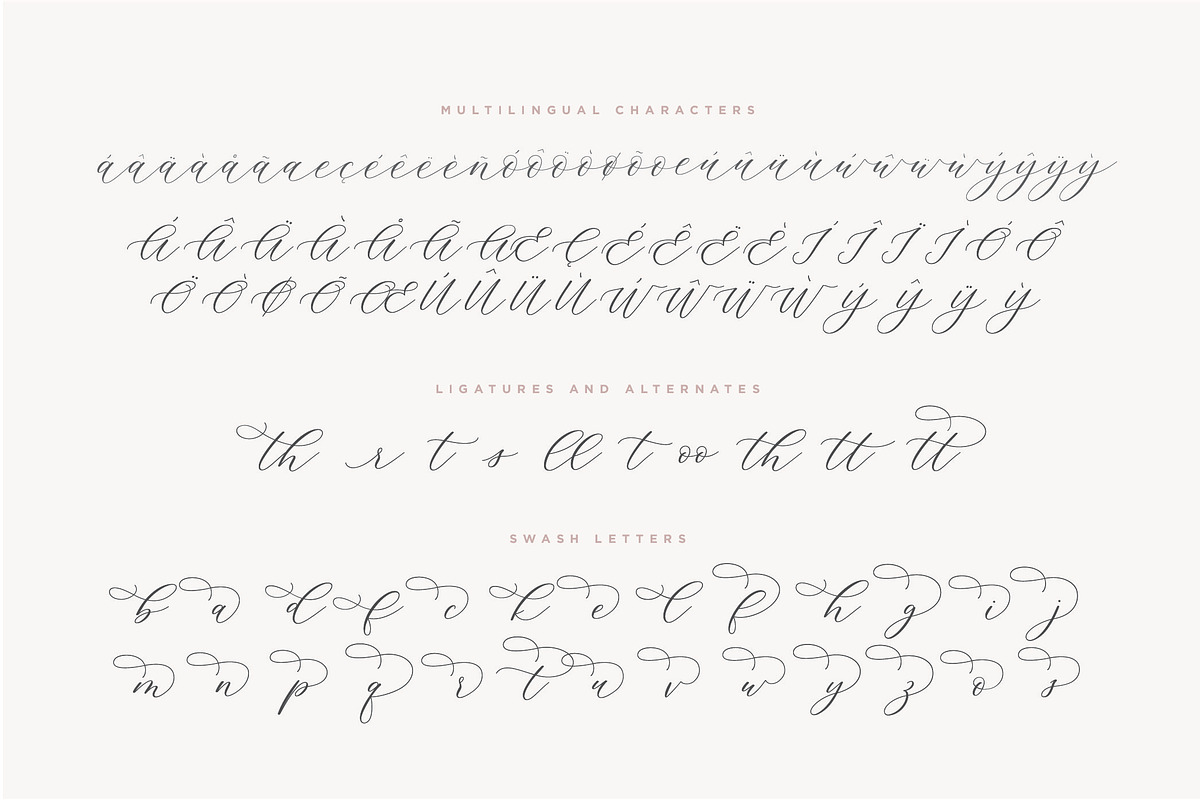 MULTILINGUAL CHARACTERS
áâäàåãæçéêëèñóôöòøõœúûüùẃŵẅẁýŷÿỳ
Á Â Ä À Å Ã Æ Ç É Ê Ë È Í Î Ï Ì Ó Ô
Ö Ò Ø Õ Œ Ú Û Ü Ù Ẃ Ŵ Ẅ Ẁ Ý Ŷ Ÿ Ỳ
LIGATURES AND ALTERNATES
th r t s ll t oo th tt tt
SWASH LETTERS
b a d f c k e l f h g i j
m n p q r t u v w y z o s